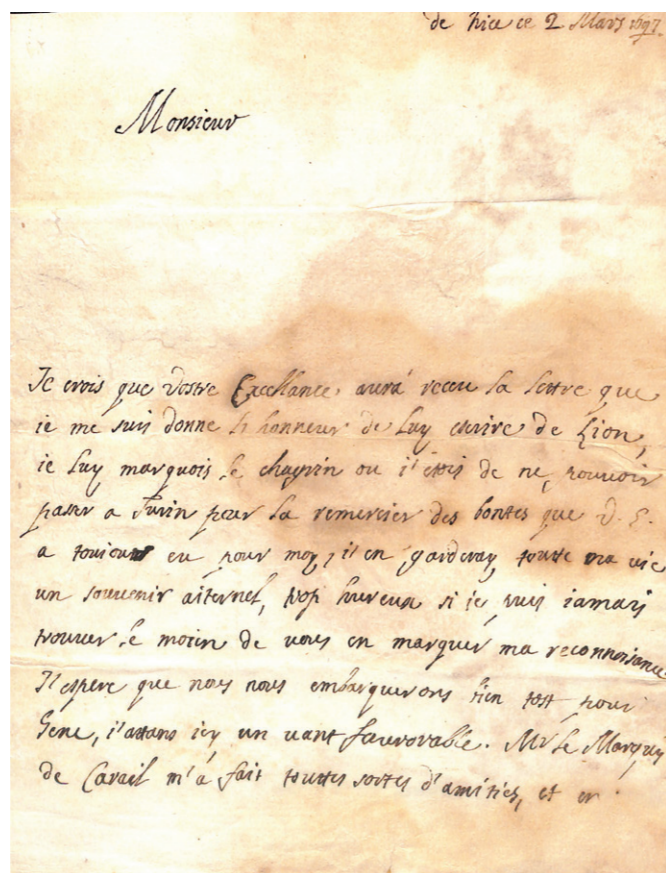 de Nice ce 2 Mars 1697.
Monsieur
Je crois que Vostre Excellance, aura receu la lettre que
ie me suis donne l'honneur de luy escrire de Lion,
ie luy marquois le chagrin ou i'etois de ne, pouvoir
passer a Turin pour la remercier des bontes que V. E.
a toujours eu pour moy, i'en garderay, toutte ma vie
un souvenir aiternel, trop hureux si ie puis iamais
trouver le moien de vous en marquer ma reconnoisance.
J'espere que nous nous embarquerons bien tost pour
Gene, i'attans icy un vant favorable. Mr le Marquis
de Carail m'a fait touttes sortes d'amities, et